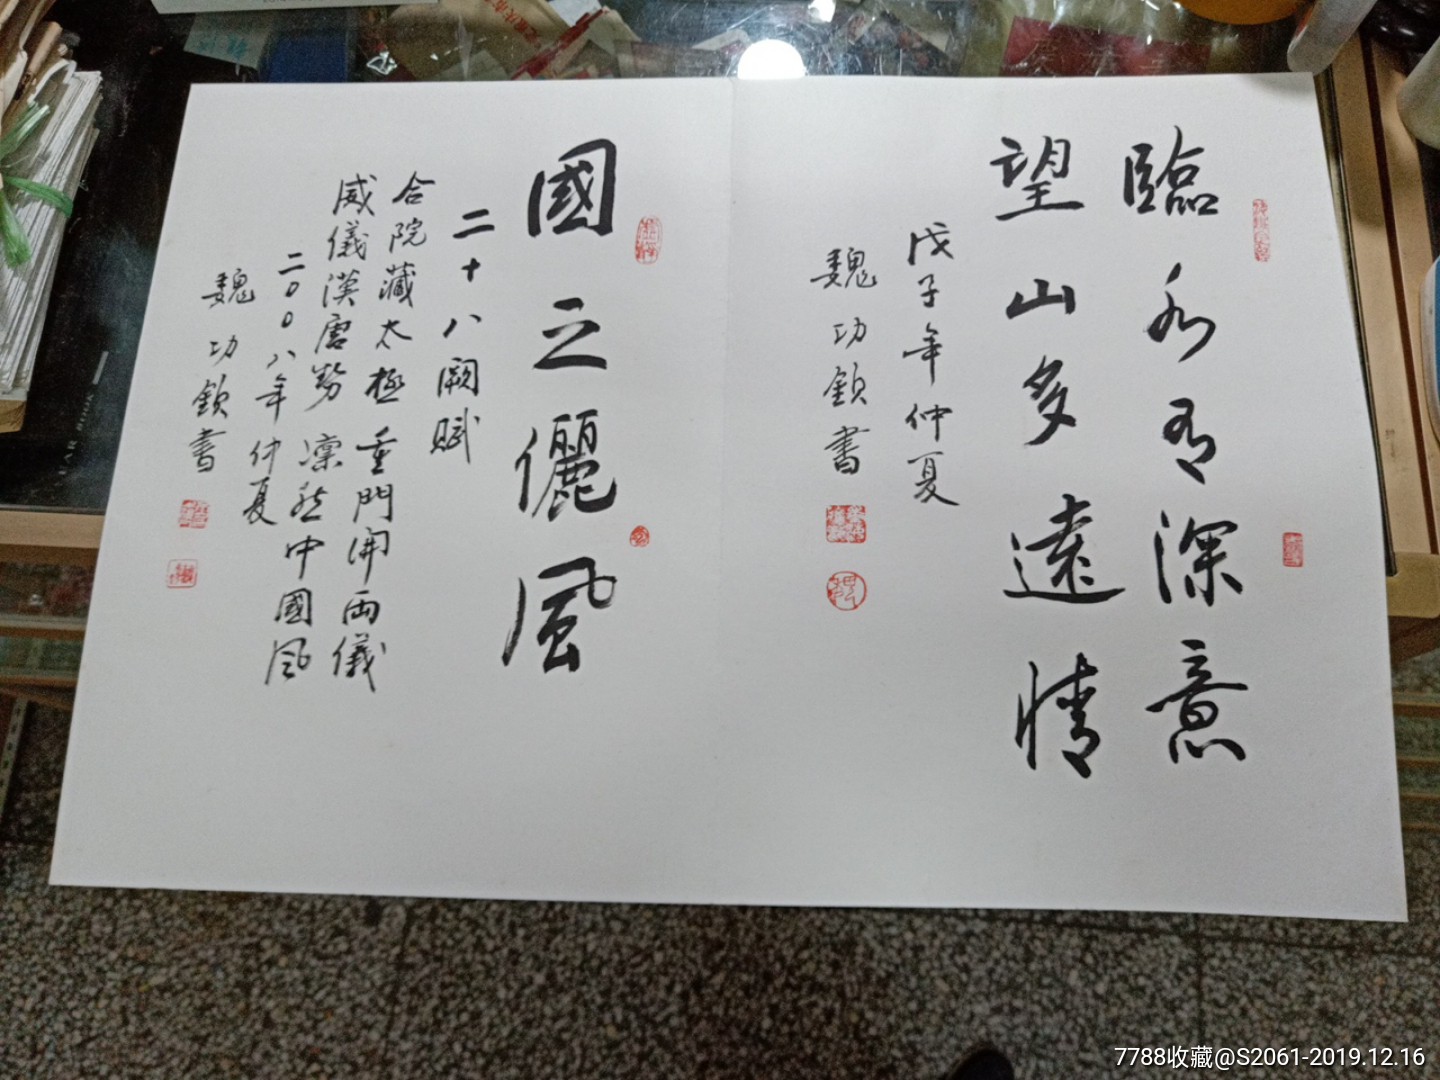 臨水有深意
望山多遠情
戊子年仲夏
魏功欽書
國之儷風
二十八闕賦
合院藏太極重門開両儀
威儀漢唐勢凜然中國風
二00八年仲夏
魏功欽書
7788收藏@S2061-2019.12.16